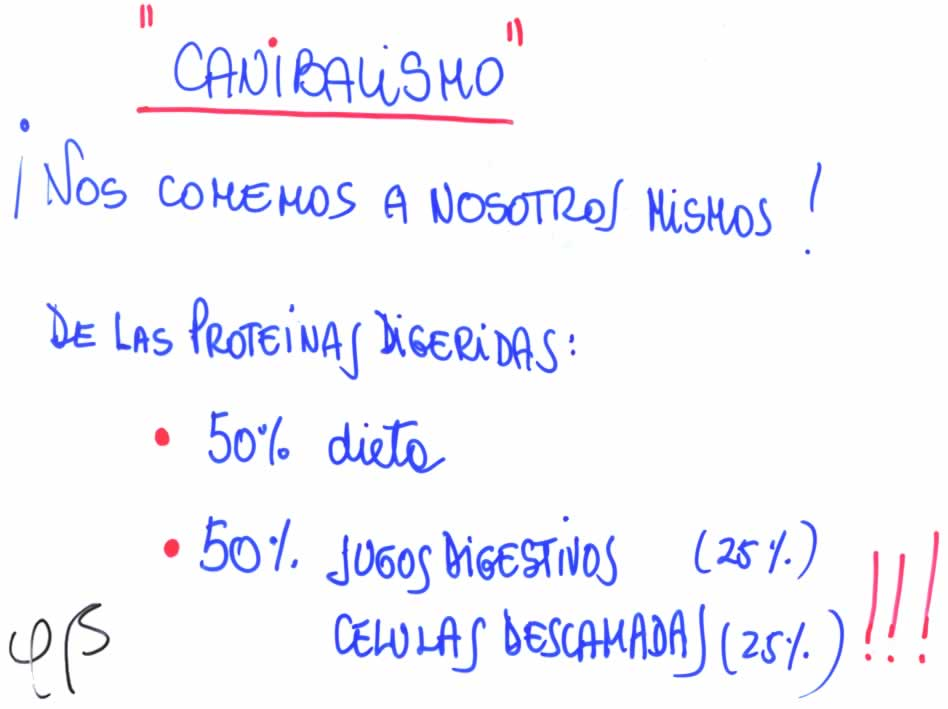 "CANIBALISMO"
¡NOS COMEMOS A NOSOTROS MISMOS!
DE LAS PROTEINAS DIGERIDAS:
• 50% dieta
• 50% JUGOS DIGESTIVOS (25%)
CELULAS DESCAMADAS (25%) !!!